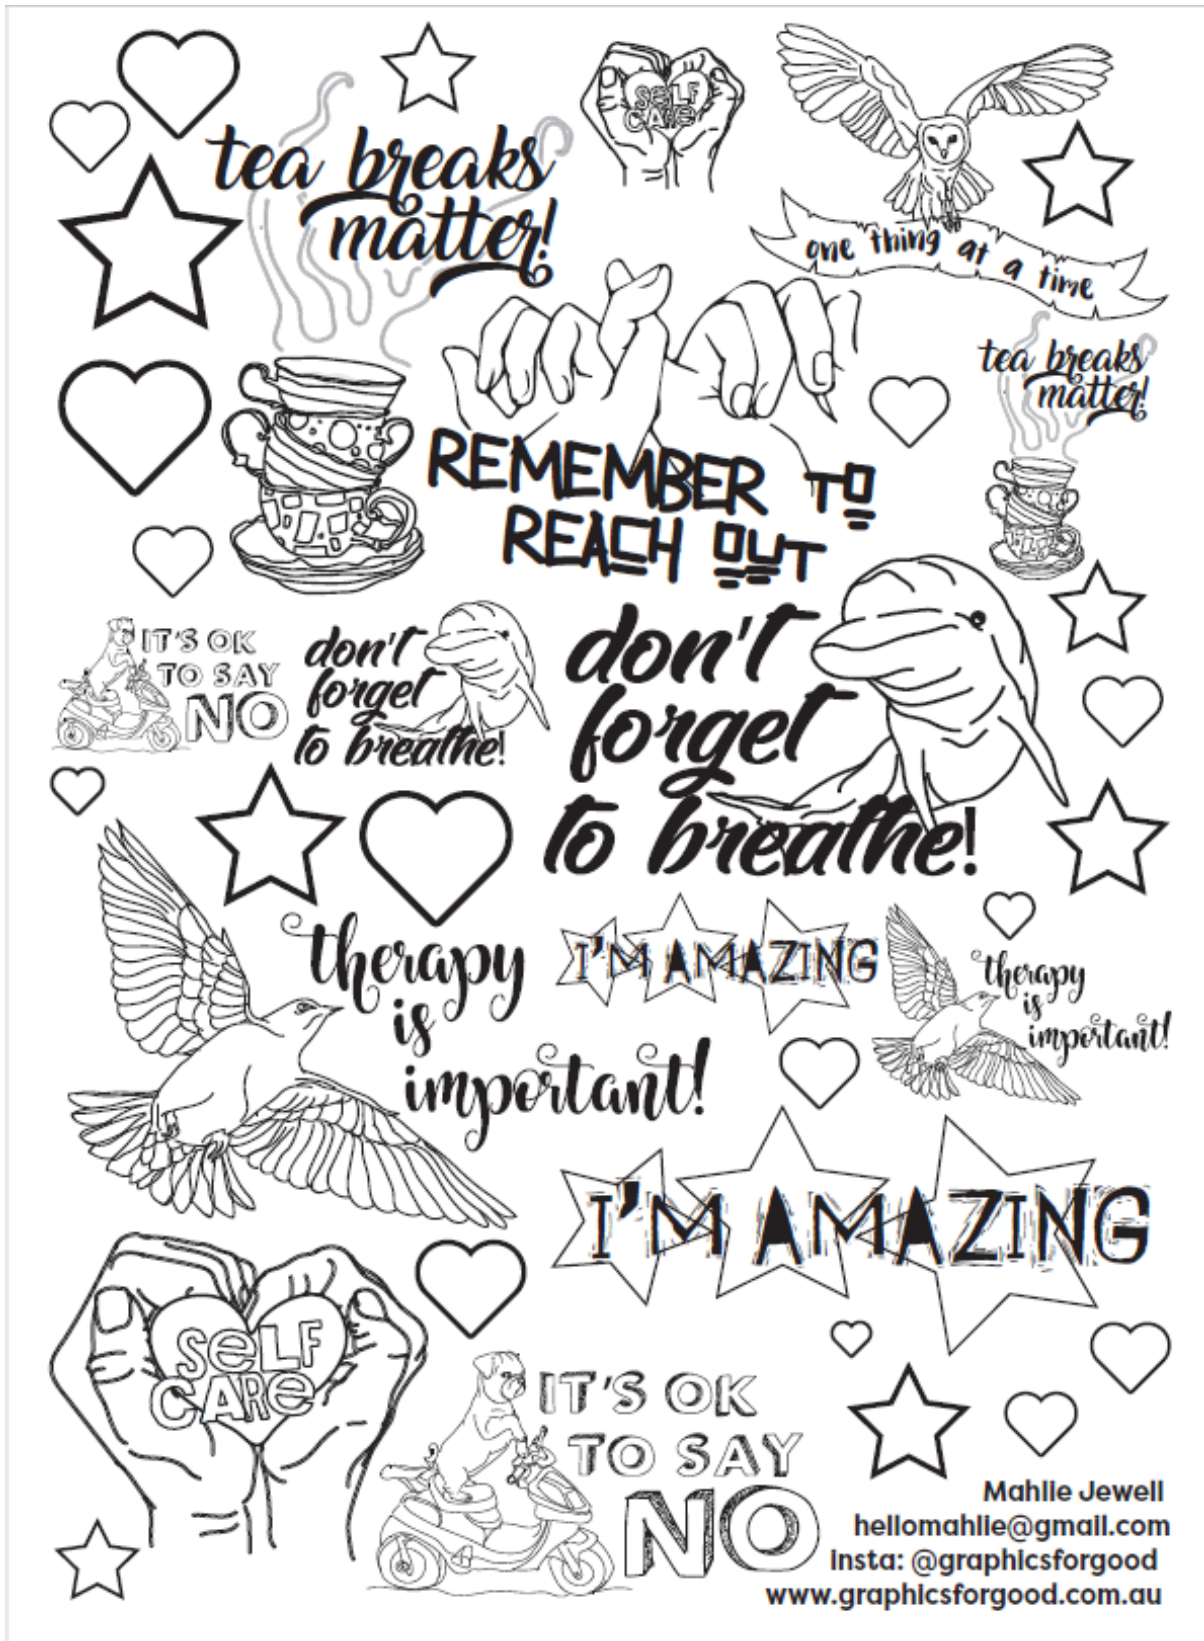 SELF
CARE
tea breaks
matter!
one thing at a time
tea breaks
matter!
REMEMBER TO
REACH OUT
IT'S OK
TO SAY
NO
don't
forget
to breathe!
don't
forget
to breathe!
therapy
is
important!
I'M AMAZING
therapy
is
important!
I'M AMAZING
SeLF
CARe
IT'S OK
TO SAY
NO
Mahlie Jewell
hellomahlie@gmail.com
Insta: @graphicsforgood
www.graphicsforgood.com.au